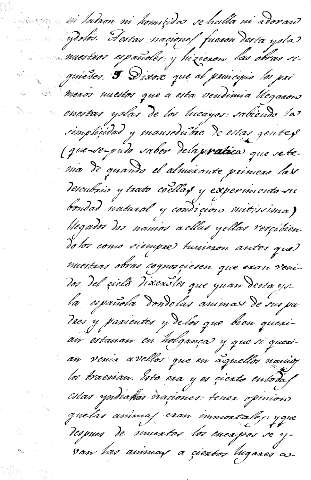 ni ladron ni homicida se halla ni adoran
ydolos. A estas naciones fueron desta ysla
nuestros españoles y hizieron las obras si
guientes. Dizese que al principio los pri
meros nuestros que a esta vendimia llegaron
en estas yslas de los lucayos sabiendo la
simplicidad y mansedumbre de estas gentes
(que se pudo saber de la pratica que se te
nia de quando el almirante primero las
descubrio y trato con ellas y experimento su
bondad natural y condiçion mitissima)
llegados dos navios a ellas y ellos resçibien
dolos como siempre tuvieron antes que
nuestras obras cognosçiesen que eran veni
dos del çielo dixeronles que yuan desta ysla
la española donde las animas de sus pa
dres y parientes y de los que bien queri
an estavan en holganza y que si queri
an venir a vellos que en aquellos navios
los traerian. Esto era y es çierto en todas
estas yndianas naçiones tener opinion
que las animas eran immortales y que
despues de muertos los cuerpos se y
van las animas a çiertos lugares a-